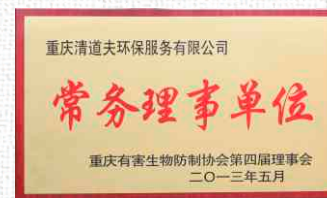 重庆清道夫环保服务有限公司
常务理事单位
重庆有害生物防制协会第四届理事会
二〇一三年五月